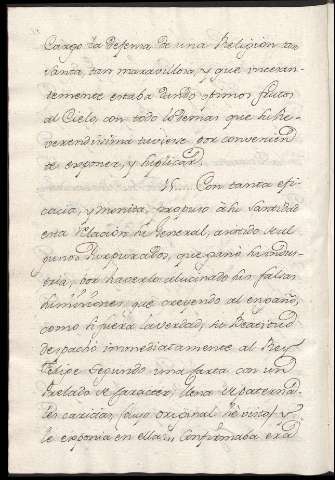 Cargo la defensa de una Religion tan
santa, tan maravillosa, y que incesan-
temente estaba dando optimos frutos
al Cielo, con todo lo demas que su Re-
verendisima tuviese por convenien-
te exponer, y suplicar.
Con tanta efi-
cacia, y propuso à su Santidad
esta relacion su General,
que ganò su indus-
tria, por haverlo alucinado sus falsas
que creyendo al engaño,
como si fuera la verdad, su Beatitud
despachò immediatamente al Rey
Felipe Segundo una Carta con un
Prelado de caracter, llena de paterna-
les caricias, cuyo original hè visto, y
le exponia en ella, Confirmada era